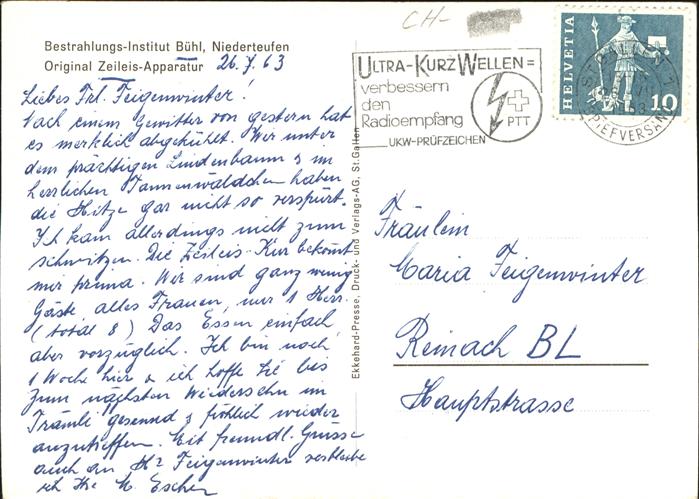 Bestrahlungs-Institut Bühl, Niederteufen
Original Zeileis-Apparatur 26.7.63
Liebes Frl. Feigenwinter!
Nach einem Gewitter von gestern hat
es merklich abgekühlt. Wir unter
dem prächtigen Lindenbaum & im
herrlichen Tannenwäldchen haben
die Hitze gar nicht so verspürt.
Ich kam allerdings nicht zum
schwitzen. Die Zeileis-Kur bekommt
mir prima. Wir sind ganz wenig
Gäste, alles Frauen, nur 1 Herr.
(total 8) Das Essen einfach,
aber vorzüglich. Ich bin noch
1 Woche hier & ich hoffe Sie bis
zum nächsten Wiedersehn im
Trämli gesund & fröhlich wieder
anzutreffen. Mit freundl. Grüsse
auch an Hr Feigenwinter verbleibe
ich Ihre M. Escher
Ekkehard-Presse, Druck- und Verlags-AG, St. Gallen
CH-
ULTRA-KURZWELLEN =
verbessern
den
Radioempfang
UKW-PRÜFZEICHEN
PTT
HELVETIA
10
BRIEFVERSAND
Fräulein
Maria Feigenwinter
Reinach BL
Hauptstrasse